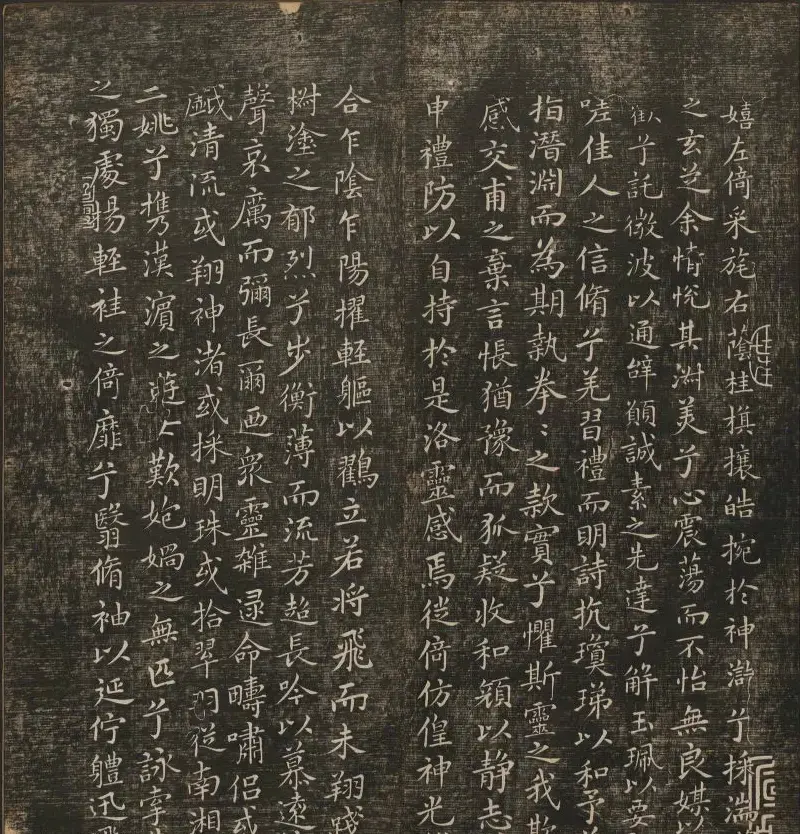 嬉左倚采旄右蔭桂旗攘皓捥於神滸兮採湍
之玄芝余情悅其淑美兮心震蕩而不怡無良媒
歡兮託微波以通辭願誠素之先達兮解玉珮以要
嗟佳人之信脩兮羌習禮而明詩抗瓊珶以和予
指潛淵而為期執拳〻之款實兮懼斯靈之我欺
感交甫之棄言悵猶豫而狐疑收和顏以靜志
申禮防以自持於是洛靈感焉徙倚仿偟神光
合乍陰乍陽擢輕軀以鶴立若將飛而未翔踐
樹塗之郁烈兮步衡薄而流芳超長吟以慕遠
聲哀厲而彌長爾迺眾靈雜遝命疇嘯侶或
戲清流或翔神渚或採明珠或拾翠羽從南湘
二姚兮攜漢濱之遊女歎匏媧之無匹兮詠牽
之獨處揚輕袿之倚靡兮翳脩袖以延佇體迅飛